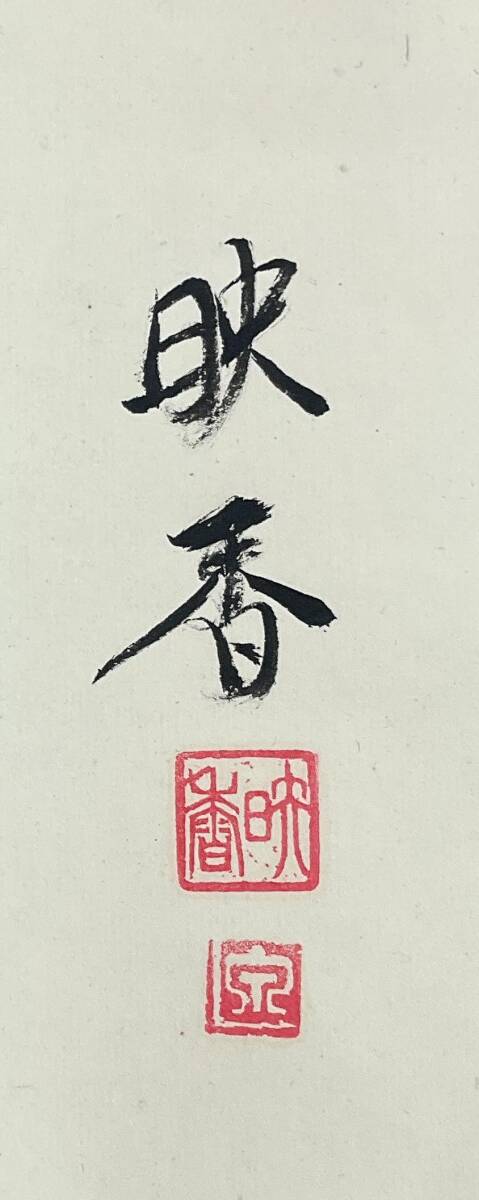 映香
映香